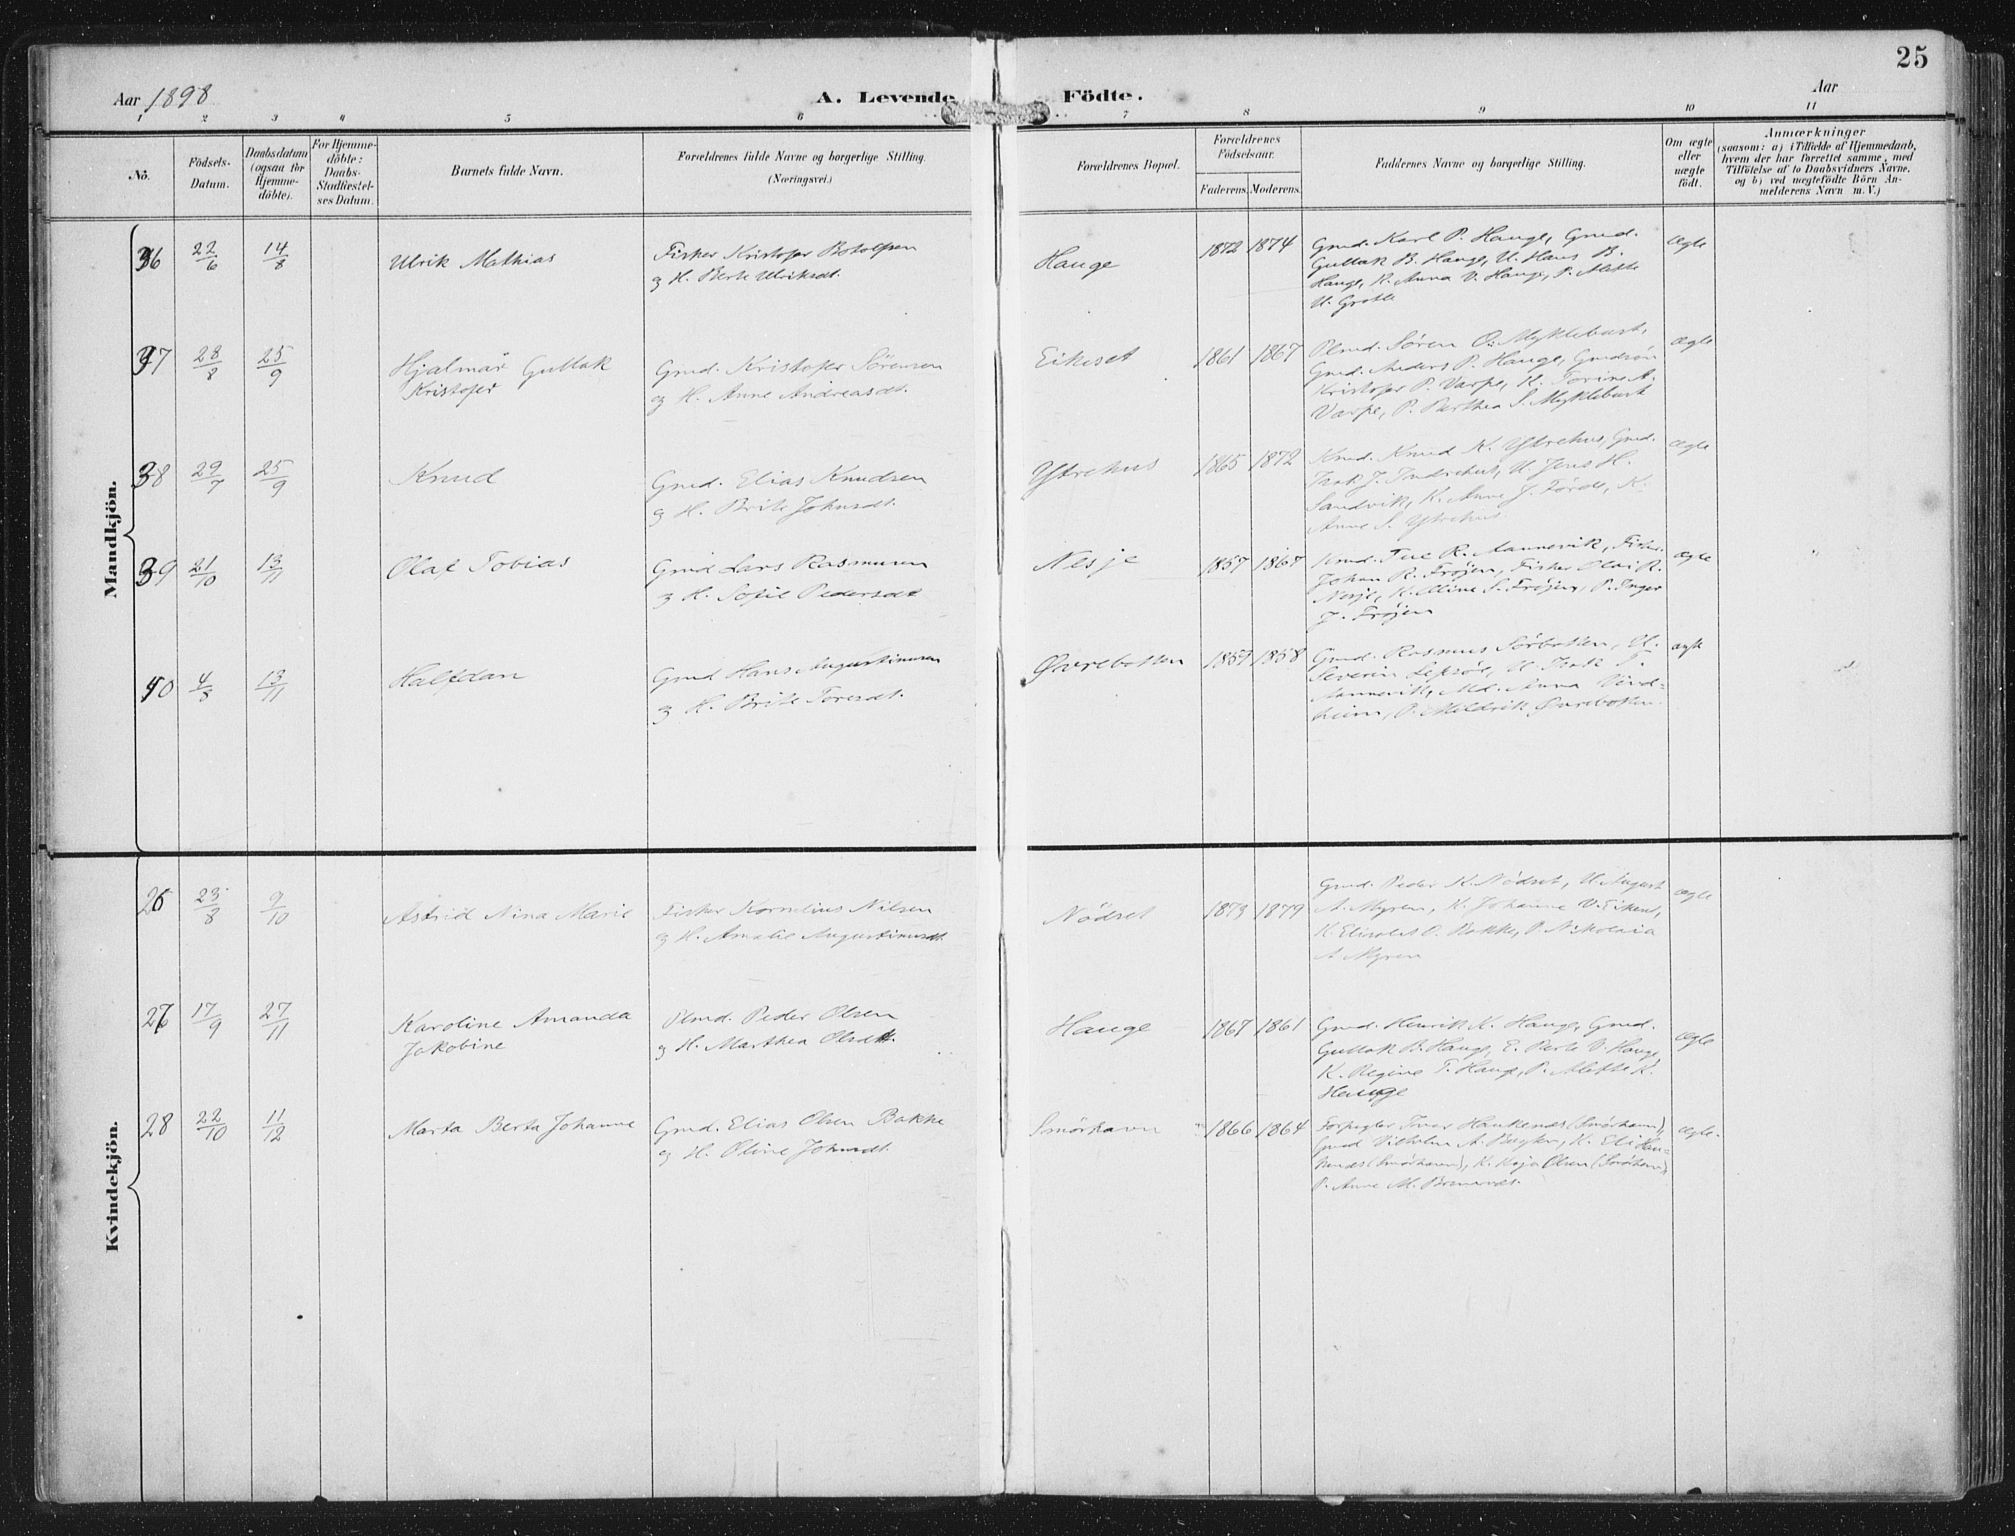 25
Aar 1898
A. Levende
Födte.
Aar
1 2 3 4 5 6 7 8 9 10 11
No.
Födsels-
Datum.
Daabsdatum
(ogsaa for
Hjemme-
döbte).
For Hjemme-
döbte:
Daabs-
Stadfæstel-
ses Datum.
Barnets fulde Navn.
Forældrenes fulde Navne og borgerlige Stilling.
(Næringsvei.)
Forældrenes Bopæl.
Forældrenes
Födselsaar.
Faderens. Moderens.
Faddernes Navne og borgerlige Stilling.
Om ægte
eller
uægte
födt.
Anmærkninger
(saasom: a) i Tilfælde af Hjemmedaab,
hvem der har forrettet samme, med
Tilföielse af to Daabsvidners Navne.
og b) ved uægtefödte Börn An-
melderens Navn m. V.)
Mandkjön.
36 22/6 14/8 Ulrik Mathias
Fisker Kristofer Botolfsen
og H. Berte Ulriksdt.
Hauge 1872 1874
Gmd. Karl P. Hauge, Gmd.
Guttak B. Hauge, U. Hans B.
Hauge, K. Anna V. Hauge, P. Mette
U. Grotle
ægte
37 28/8 25/9 Hjalmar Guttak
Kristofer
Gmd. Kristofer Sörensen
og H. Anne Andreasdt.
Eikeset 1861 1867
Plmd. Søren O. Myklebust,
Gmd. Anders P. Hauge, Gmdsön
Kristofer P. Varpe, K. Torine A.
Varpe, P. Parthea S. Myklebust
ægte
38 29/7 25/9 Knud
Gmd. Elias Knudsen
og H. Brite Johnsdt.
Ytrehus 1865 1872
Kmd. Knud K. Ytrehus, Gmd.
Isak J. Indrehus, U. Jens H.
Sandvik, K. Anne J. Förde, K.
Anne S. Ytrehus
ægte
39 21/10 13/11 Olaf Tobias
Gmd Lars Rasmusen
og H. Sofie Pedersdt
Nesje 1857 1867
Kmd. Tue R. Mannevik, Fisker
Johan R. Frøjen, Fisker Olai R.
Nesje, K. Eline S. Frøjen, P. Inger
J. Frøjen
ægte
40 4/3 13/11 Halfdan
Gmd Hans Augustinusen
og H. Brite Toresdt.
Øvrebotten 1857 1858
Gmd. Rasmus Sørbotten, U.
Severin Lepsöe, U. Isak T.
Mannevik, Md. Anna Vind=
heim, P. Mildrik Øvrebotten.
ægte
Kvindekjön.
26 23/8 9/10 Astrid Nina Marie
Fisker Kornelius Nilsen
og H. Amalie Augustinusdt.
Nödset 1873 1879
Gmd. Peder K. Nödset, U. August
A. Myren, K. Johanne V. Eikeset,
K. Elisabet O. Bakke, P. Nikolaia
A Myren
ægte
27 17/9 27/11 Karoline Amanda
Jakobine
Plmd. Peder Olsen
og H. Marthea Olsdt.
Hauge 1867 1861
Gmd. Henrik K. Hauge, Gmd.
Guttak B. Hauge, E. Berte V. Hauge
K. Regine T. Hauge, P. Mette K.
Hauge
ægte
28 22/10 11/12 Marta Berta Johanne
Gmd. Elias Olsen Bakke
og H. Oline Johnsdt.
Smörhavn 1866 1864
Forpagter Ivar Haukenæs (Smörhavn),
Gmd Vilhelm A. K. Eli Hau=
kenæs (Smörhavn), K. Kaja Olsen (Smörhavn)
P. Anne M. Bremnæs.
ægte.